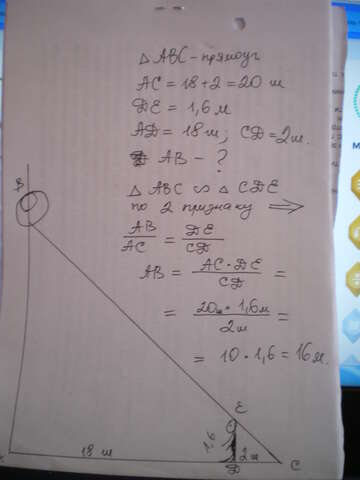 △ ABC - прямоуг
AC = 18 + 2 = 20 ш
DE = 1,6 м
AD = 18 ш; CD = 2 ш.
AB - ?
△ ABC ∽ △ CDE
по 2 признаку ⟹
AB/AC = DE/CD
AB = AC · DE / CD =
= 20ш · 1,6м / 2ш =
= 10 · 1,6 = 16 м.
B
E
1,6
18 ш
D
2 ш
C